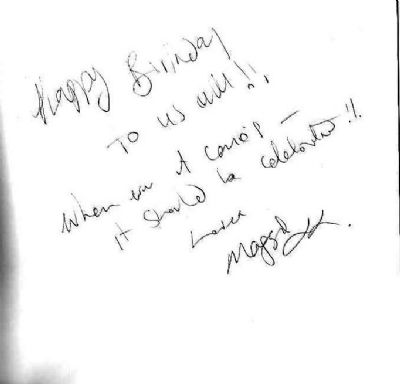 Happy Birthday
To us all!!
When ever it comes -
it should be celebrated!!
Love